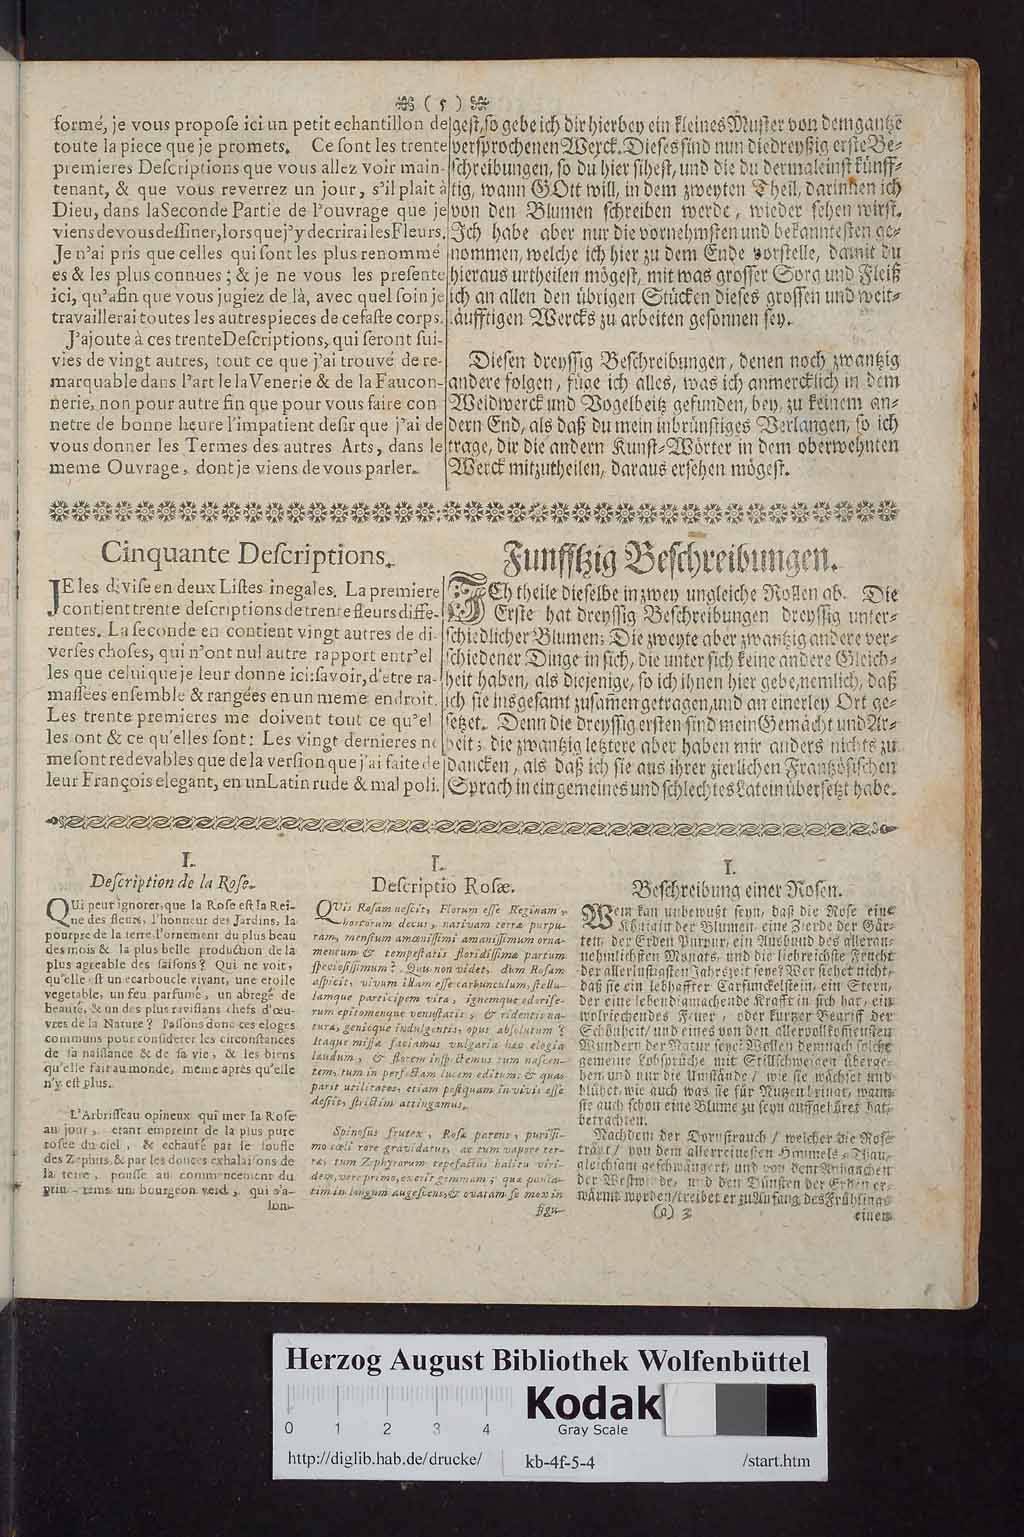 ( 5 )
formé, je vous propoſe ici un petit echantillon de
toute la piece que je promets. Ce ſont les trente
premieres Deſcriptions que vous allez voir main-
tenant, & que vous reverrez un jour, s'il plait à
Dieu, dans la Seconde Partie de l'ouvrage que je
viens de vous deſſiner, lorsque j'y decrirai les Fleurs.
Je n'ai pris que celles qui ſont les plus renommé
es & les plus connues; & je ne vous les preſente
ici, qu'afin que vous jugiez de là, avec quel ſoin je
travaillerai toutes les autres pieces de ce faſte corps.
J'ajoute à ces trente Deſcriptions, qui ſeront ſui-
vies de vingt autres, tout ce que j'ai trouvé de re-
marquable dans l'art le la Venerie & de la Faucon-
nerie, non pour autre fin que pour vous faire con
netre de bonne heure l'impatient deſir que j'ai de
vous donner les Termes des autres Arts, dans le
meme Ouvrage, dont je viens de vous parler.
geſt, ſo gebe ich dir hierbey ein kleines Muſter von dem gantze
verſprochenen Werck. Dieſes ſind nun die dreyßig erſte Be-
ſchreibungen, ſo du hier ſiheſt, und die du dermaleinſt künff-
tig, wann GOtt will, in dem zweyten Theil, darinnen ich
von den Blumen ſchreiben werde, wieder ſehen wirſt.
Ich habe aber nur die vornehmſten und bekannteſten ge-
nommen, welche ich hier zu dem Ende vorſtelle, damit du
hieraus urtheilen mögeſt, mit was groſſer Sorg und Fleiß
ich an allen den übrigen Stücken dieſes groſſen und weit-
läufftigen Wercks zu arbeiten geſonnen ſey.
Dieſen dreyſſig Beſchreibungen, denen noch zwantzig
andere folgen, füge ich alles, was ich anmercklich in dem
Weidwerck und Vogelbeitz gefunden, bey, zu keinem an-
dern End, als daß du mein inbrünſtiges Verlangen, ſo ich
trage, dir die andern Kunſt-Wörter in dem oberwehnten
Werck mitzutheilen, daraus erſehen mögeſt.
Cinquante Deſcriptions.
JE les diviſe en deux Liſtes inegales. La premiere
contient trente deſcriptions de trente fleurs diffe-
rentes. La ſeconde en contient vingt autres de di-
verſes choſes, qui n'ont nul autre rapport entr'el
les que celui que je leur donne ici: ſavoir, d'etre ra-
maſſées enſemble & rangées en un meme endroit.
Les trente premieres me doivent tout ce qu'el
les ont & ce qu'elles ſont: Les vingt dernieres ne
me ſont redevables que de la verſion que j'ai faite de
leur François elegant, en un Latin rude & mal poli.
Funfftzig Beſchreibungen.
ICh theile dieſelbe in zwey ungleiche Rollen ab. Die
Erſte hat dreyſſig Beſchreibungen dreyſſig unter-
ſchiedlicher Blumen: Die zweyte aber zwantzig andere ver-
ſchiedener Dinge in ſich, die unter ſich keine andere Gleich-
heit haben, als diejenige, ſo ich ihnen hier gebe, nemlich, daß
ich ſie insgeſamt zuſam̄en getragen, und an einerley Ort ge-
ſetzet. Denn die dreyſſig erſten ſind mein Gemächt und Ar-
beit; die zwantzig letztere aber haben mir anders nichts zu
dancken, als daß ich ſie aus ihrer zierlichen Frantzöſiſchen
Sprach in ein gemeines und ſchlechtes Latein überſetzt habe.
I.
Deſcription de la Roſe.
QUi peut ignorer, que la Roſe eſt la Rei-
ne des fleurs, l'honneur des Jardins, la
pourpre de la terre, l'ornement du plus beau
des mois & la plus belle production de la
plus agreable des ſaiſons? Qui ne voit,
qu'elle eſt un eſcarboucle vivant, une etoile
vegetable, un feu parfumé, un abregé de
beauté, & un des plus raviſſans chefs d'œu-
vres de la Nature? Paſſons donc ces eloges
communs pour conſiderer les circonſtances
de ſa naiſſance & de ſa vie, & les biens
qu'elle fait au monde, meme aprés qu'elle
n'y eſt plus.
L'Arbriſſeau epineux qui met la Roſe
au jour, etant empreint de la plus pure
rosée du ciel, & echaufé par le ſoufle
des Zephirs, & par les douces exhalaiſons de
la terre, pouſſe au commencement du
prin-tems un bourgeon verd, qui s'a-
lon-
I.
Deſcriptio Roſæ.
QVis Roſam neſcit, Florum eſſe Reginam,
hortorum decus, nativam terræ purpu-
ram, menſium amœniſſimi amaniſſimum orna-
mentum & tempeſtatis floridiſſimæ partum
ſpecioſiſſimum? Quis non videt, dum Roſam
aſpicit, vivum illam eſſe carbunculum, ſtellu-
lamque participem vitæ, ignemque odorife-
rum epitomenque venuſtatis, & ridentis na-
turæ, genioque indulgentis, opus abſolutum?
Itaque miſſa faciamus vulgaria hæc elogia
laudum, & florem inſpectemus tum naſcen-
tem, tum in perfectam lucem editum: & quas
parit utilitates, etiam poſtquam in vivis eſſe
deſiit, ſtrictim attingamus.
Spinoſus frutex, Roſæ parens, puriſſi-
mo cœli rore gravidatus, ac tum vapore ter-
ræ, tum Zephyrorum repefactus halitu viri-
dem, vere primo, exerit gemmam; quæ paula-
tim in longum augeſcens, & ovatam ſe mox in
figu-
I.
Beſchreibung einer Roſen.
Wem kan unbewußt ſeyn, daß die Roſe eine
Königin der Blumen, eine Zierde der Gär-
ten, der Erden Purpur, ein Ausbund des alleran-
nehmlichſten Monats, und die liebreichſte Feucht
der allerluſtigſten Jahrszeit ſeye? Wer ſiehet nicht,
daß ſie ein lebhaffter Carfunckelſtein, ein Stern,
der eine lebendigmachende Krafft in ſich hat, ein
wolriechendes Feuer, oder kurtzer Begriff der
Schönheit / und eines von den allervollkoṁenſten
Wundern der Natur ſeye? Wollen demnach ſolche
gemeine Lobſprüche mit Stillſchweigen überge-
hen, und nur die Umſtände / wie ſie wächſet und
blühet, wie auch was ſie für Nutzen bringt, wann
ſie auch ſchon eine Blume zu ſeyn auffgehöret hat,
betrachten.
Nachdem der Dornſtrauch / welcher die Roſe
trägt / von dem allerreineſten Himmels-Thau,
gleichſam geſchwängert, und von dem Anhauchen
der Weſtwinde, und den Dünſten der Erden er-
wärmt worden / treibet er zu Anfang des Frühlings
(a) 3
einen
Herzog August Bibliothek Wolfenbüttel
Kodak
Gray Scale
0 1 2 3 4
http://diglib.hab.de/drucke/ kb-4f-5-4 /start.htm